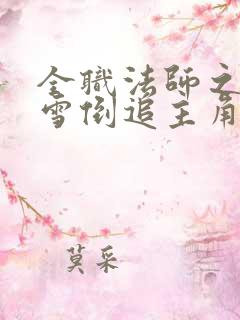 全職法師之
雪倒追主角
莫采